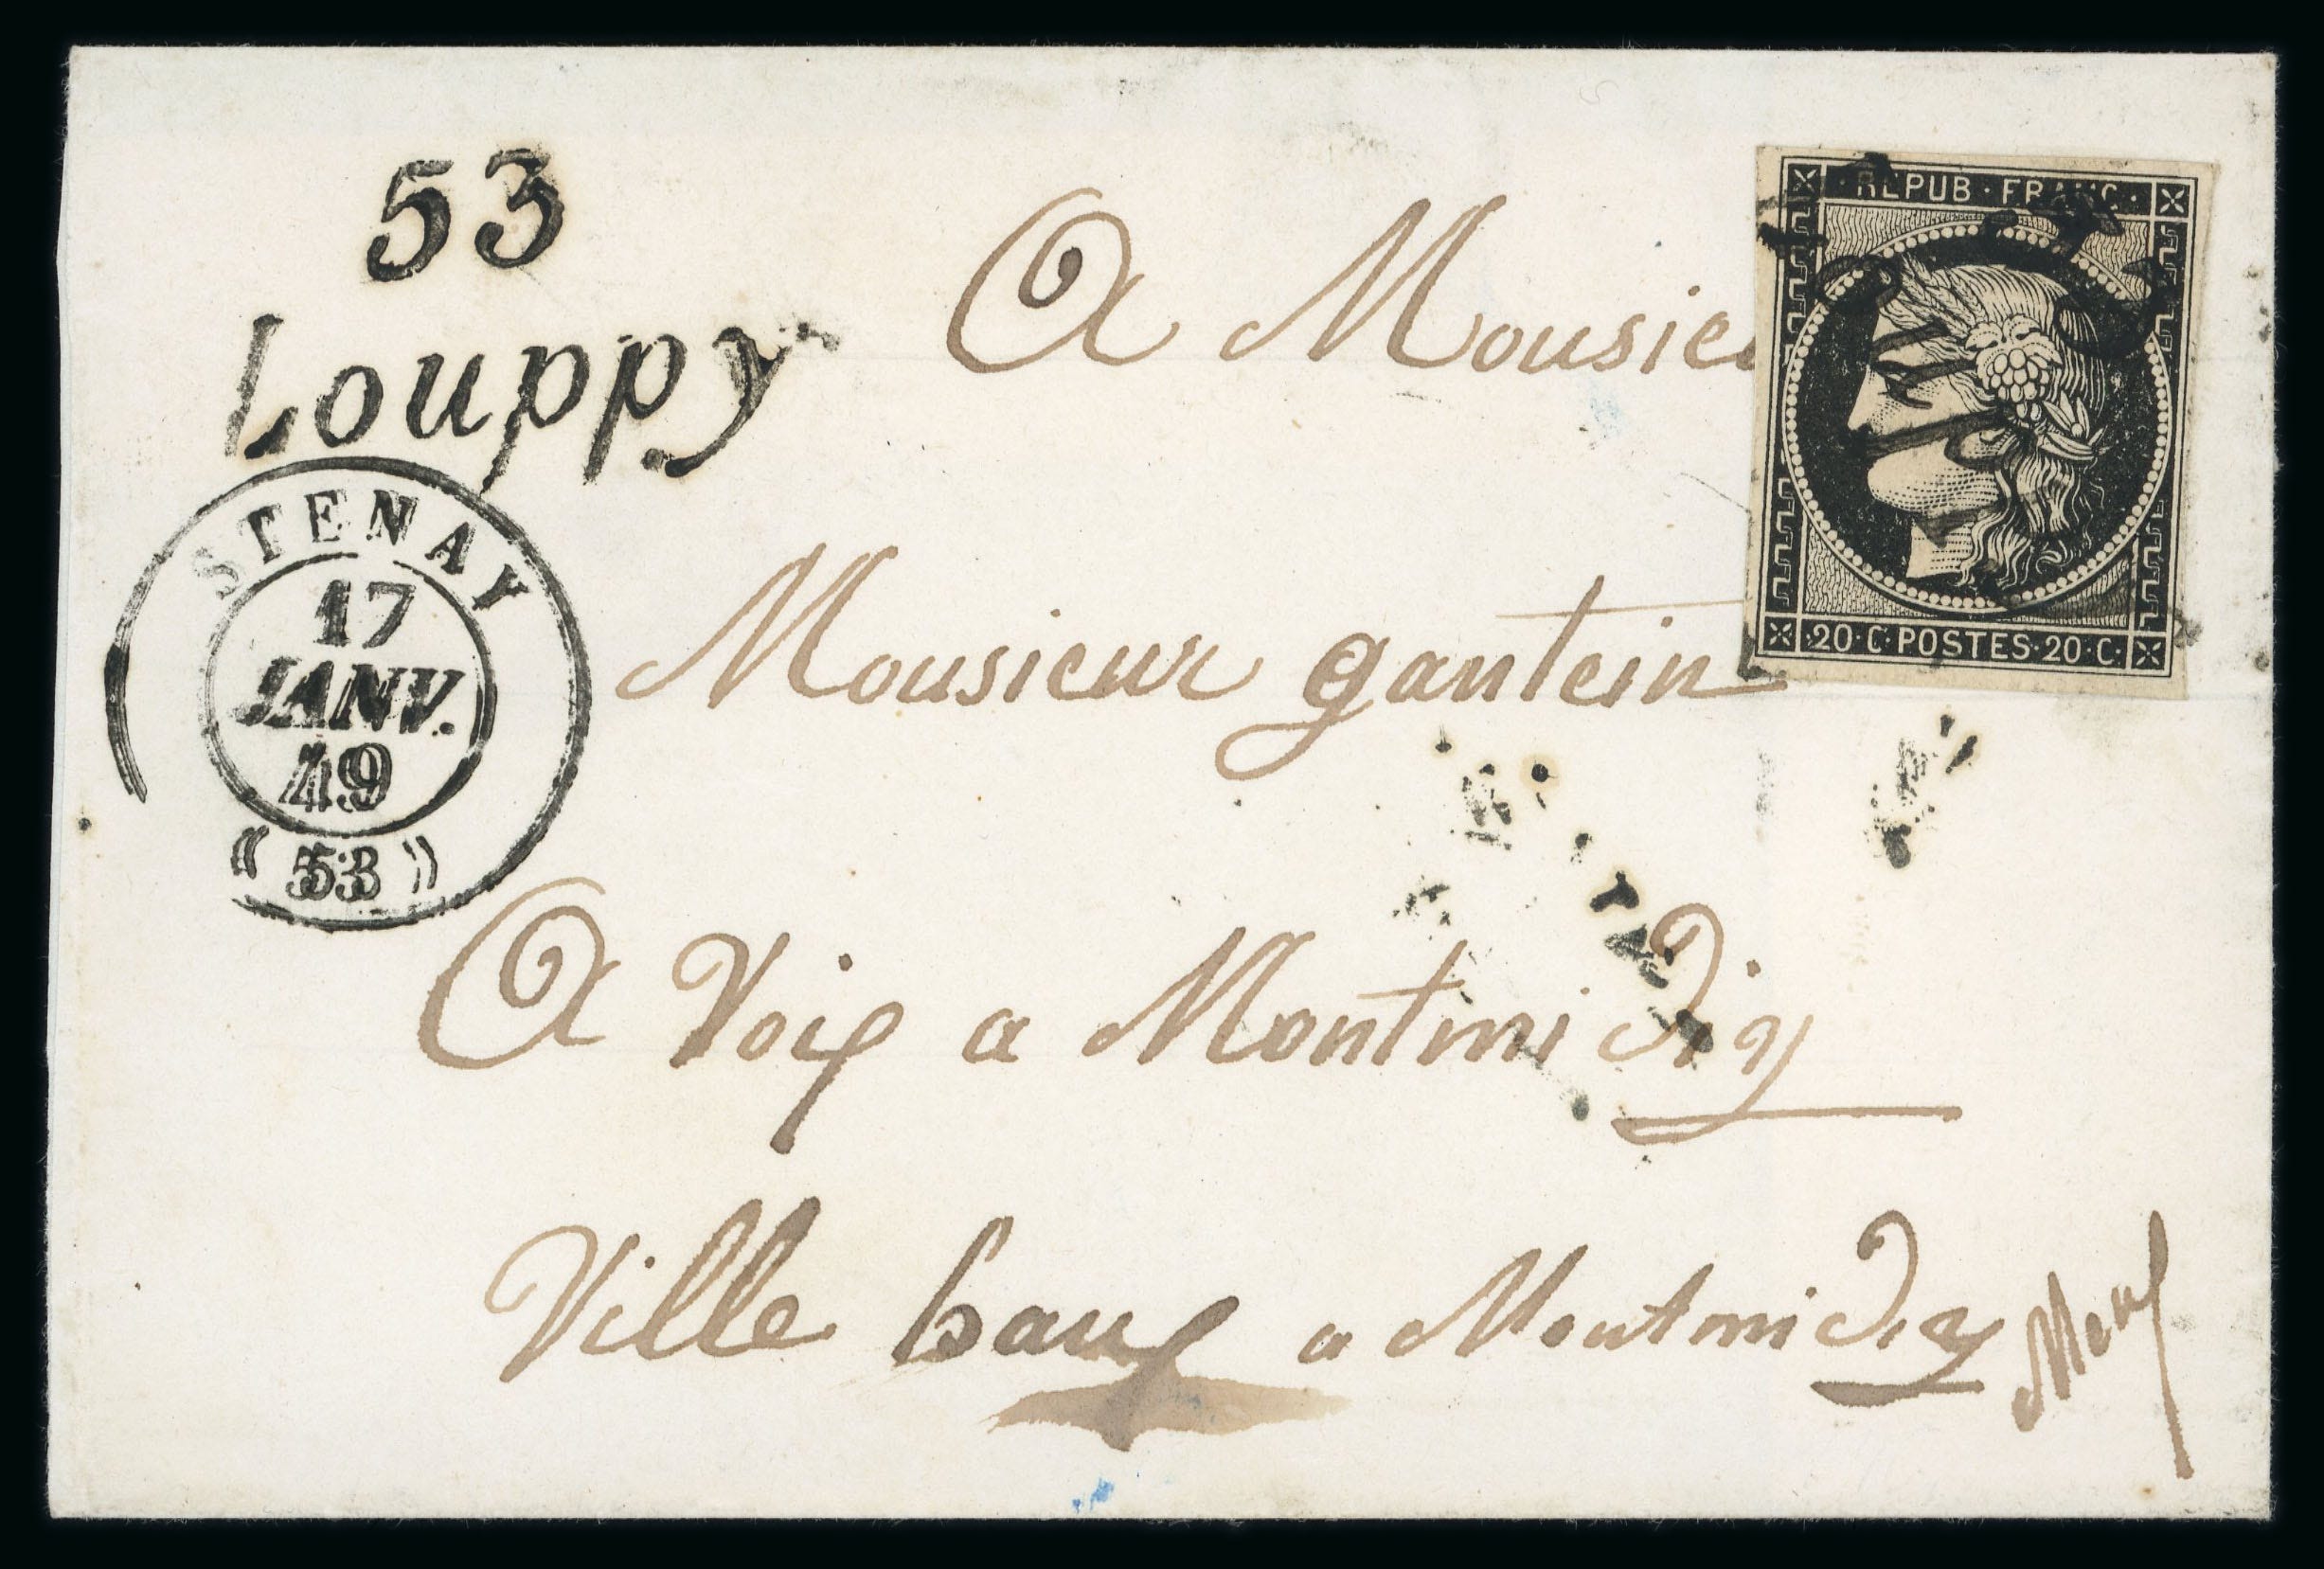 53
Louppy
STENAY
17
JANV.
49
(53)
REPUB · FRANC ·
20 · C · POSTES · 20 · C ·
A Monsieu
Monsieur gantein
A Voix a Montmidiy
Ville baux a Montmidiy